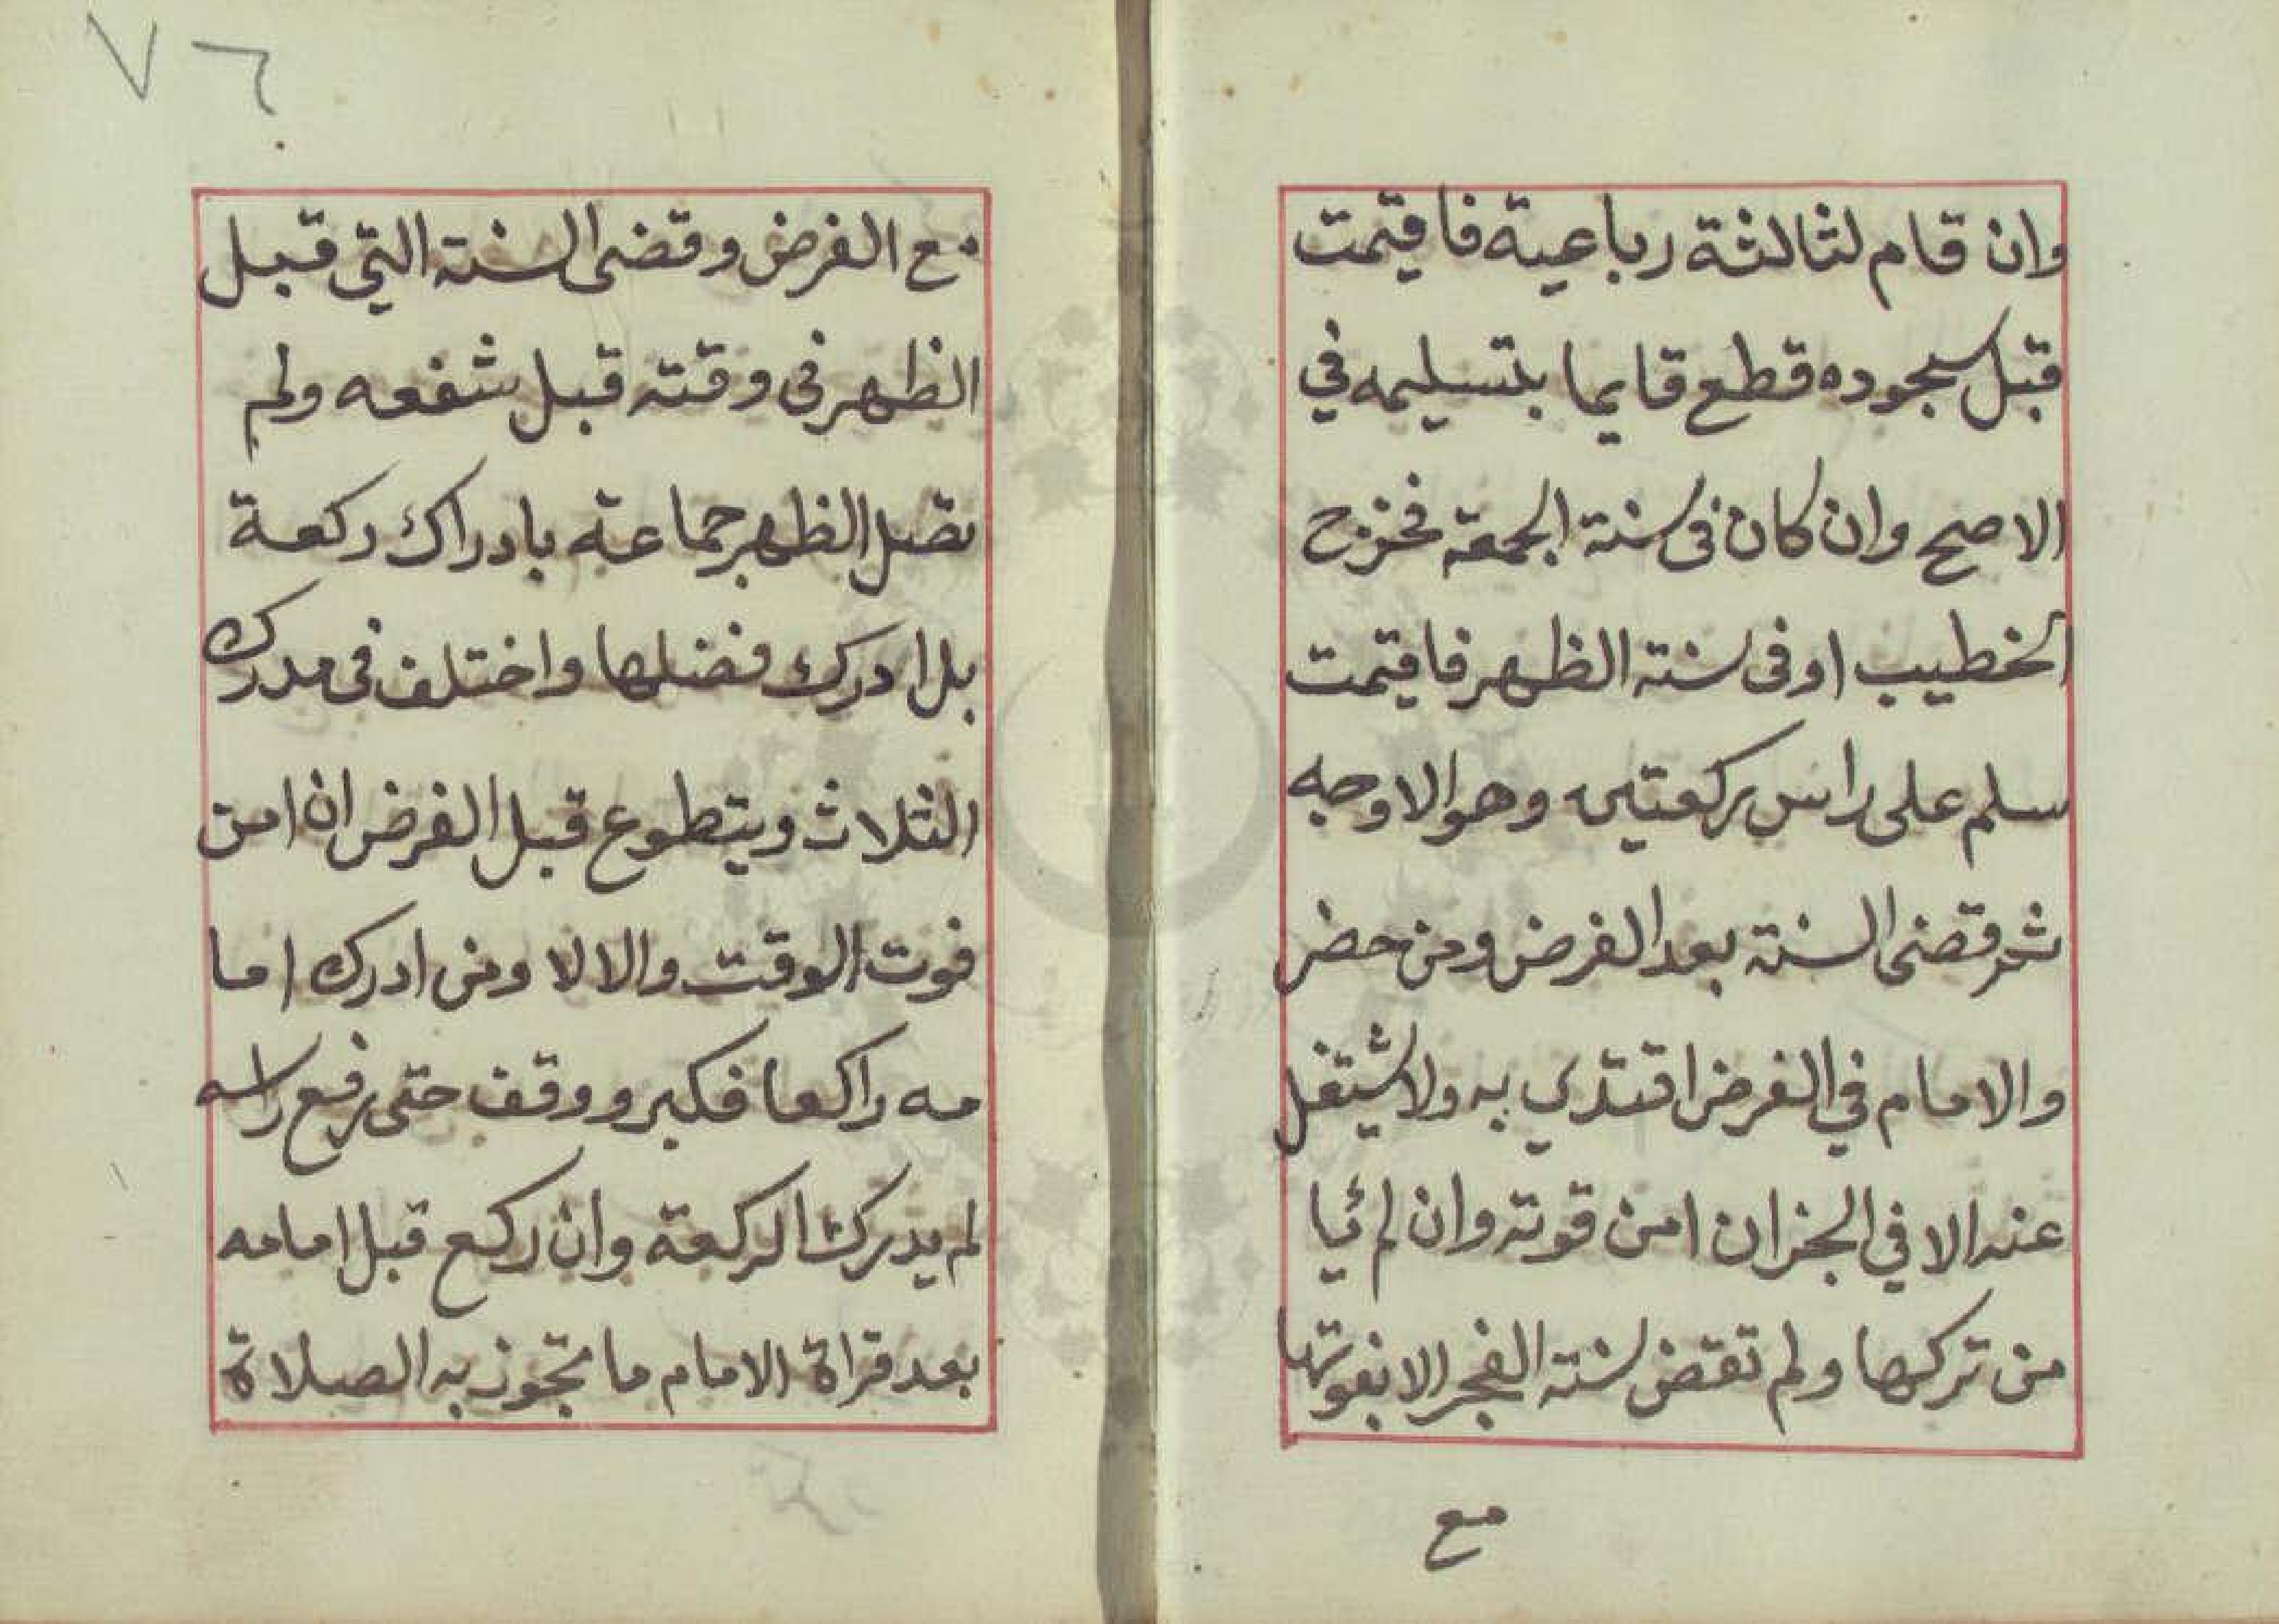 وان قام لثالثة رباعية فاقيمت
قبل سجوده قطع قايما بتسليمه في
الاصح وان كان فى سنة الجمعة فخرج
الخطيب او فى سنة الظهر فاقيمت
سلم على راس ركعتين وهو الاوجه
ثم قضى السنة بعد الفرض ومن حضر
والامام في الفرض اقتدي به ولا يشتغل
عنه الا في الفجر ان امن فوته وان لم يا
من تركها ولم تقض سنة الفجر الا بفوتها
مع
٧٦
مع الفرض وقضى السنة التي قبل
الظهر فى وقته قبل شفعه ولم
يصل الظهر جماعة بادراك ركعة
بل ادرك فضلها واختلف فى مدرك
الثلاث ويتطوع قبل الفرض ان امن
فوت الوقت والا لا ومن ادرك اما
مه راكعا فكبر ووقف حتى رفع راسه
لم يدرك الركعة وان ركع قبل امامه
بعد قراة الامام ما تجوز به الصلاة